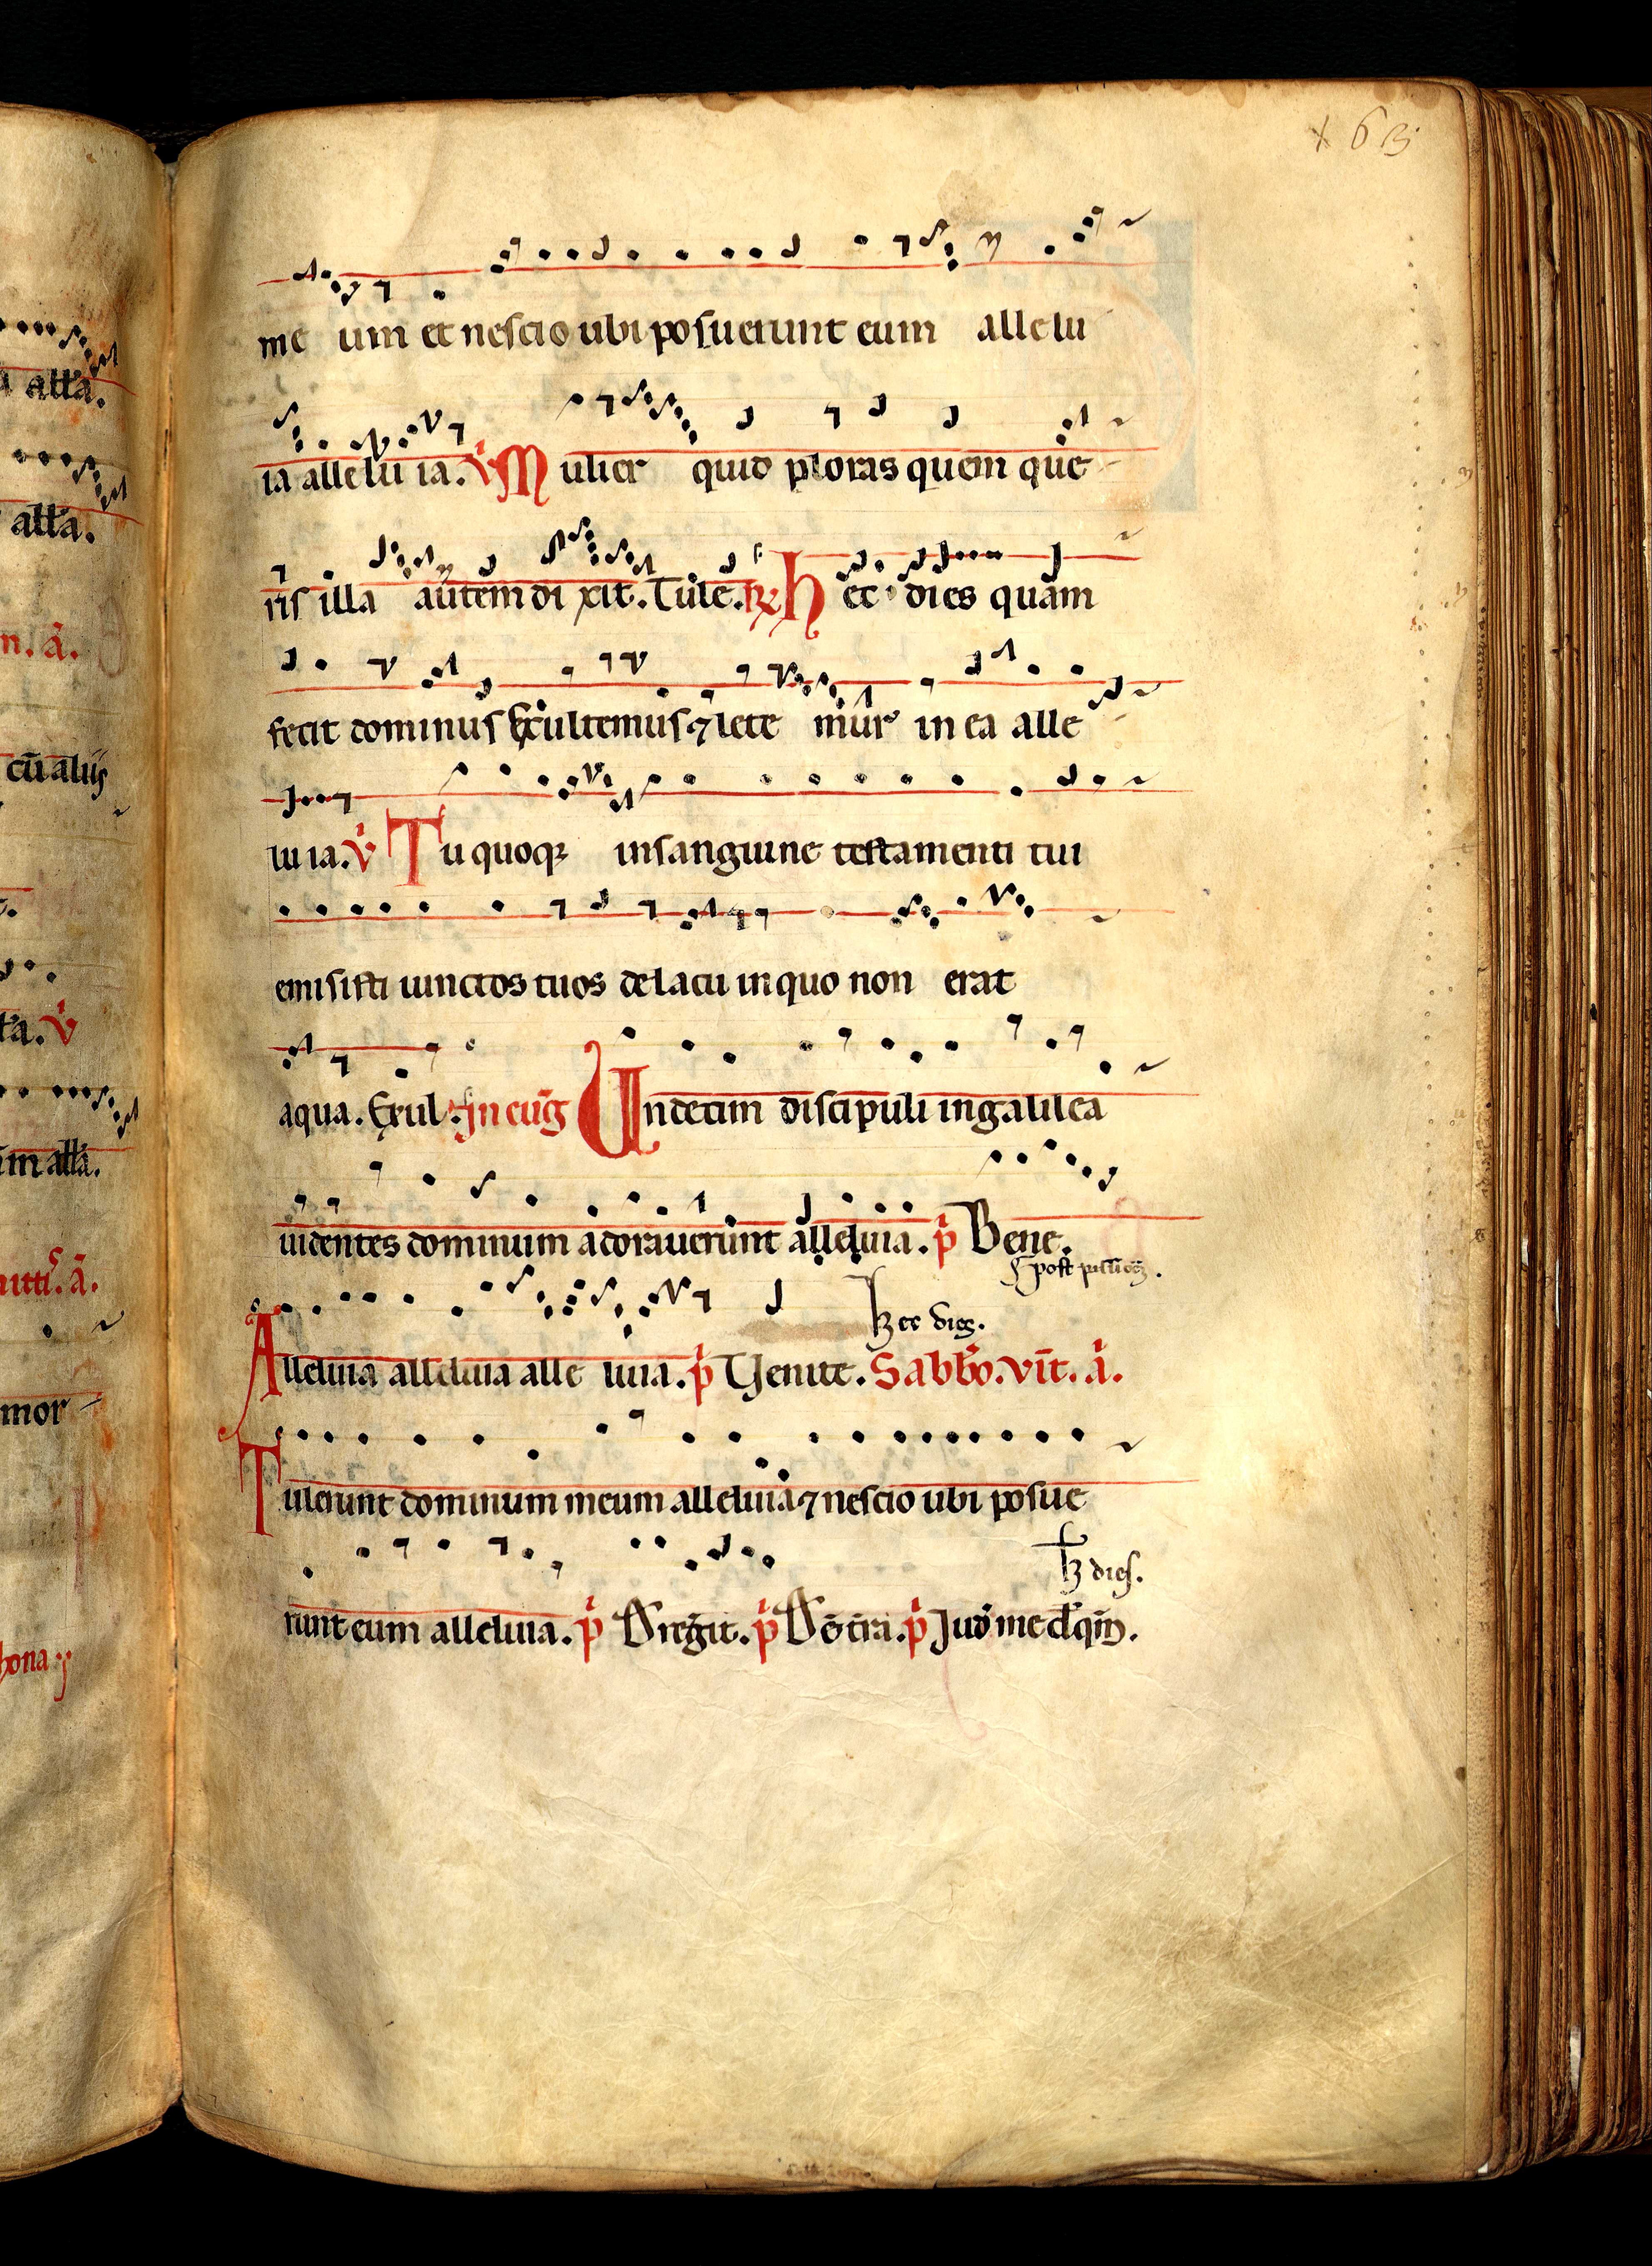 x 63
me um et nescio ubi posuerunt eum allelu
ia allelu ia. V Mulier quid ploras quem que
ris illa autem di xit. Tule. R Hec dies quam
fecit dominus Exultemus ⁊ lete mur in ea alle
lu ia. V Tu quoqꝫ in sanguine testamenti tui
emisisti uinctos tuos de lacu in quo non erat
aqua. Exul. In eu̅g Undecim discipuli in galilea
uidentes dominum adorauerunt alleluia. p Bene.
post
hec dies.
Alleluia alleluia alle luia. p Uenite. Sabbo. vit. a.
Tulerunt dominum meum alleluia ⁊ nescio ubi posue
h dies.
runt eum alleluia. p Ds regit. p Dni tra. p Jud me ds qm.
alla.
alla.
n. a.
cu aliis
ta. V
m alla.
a.
mor